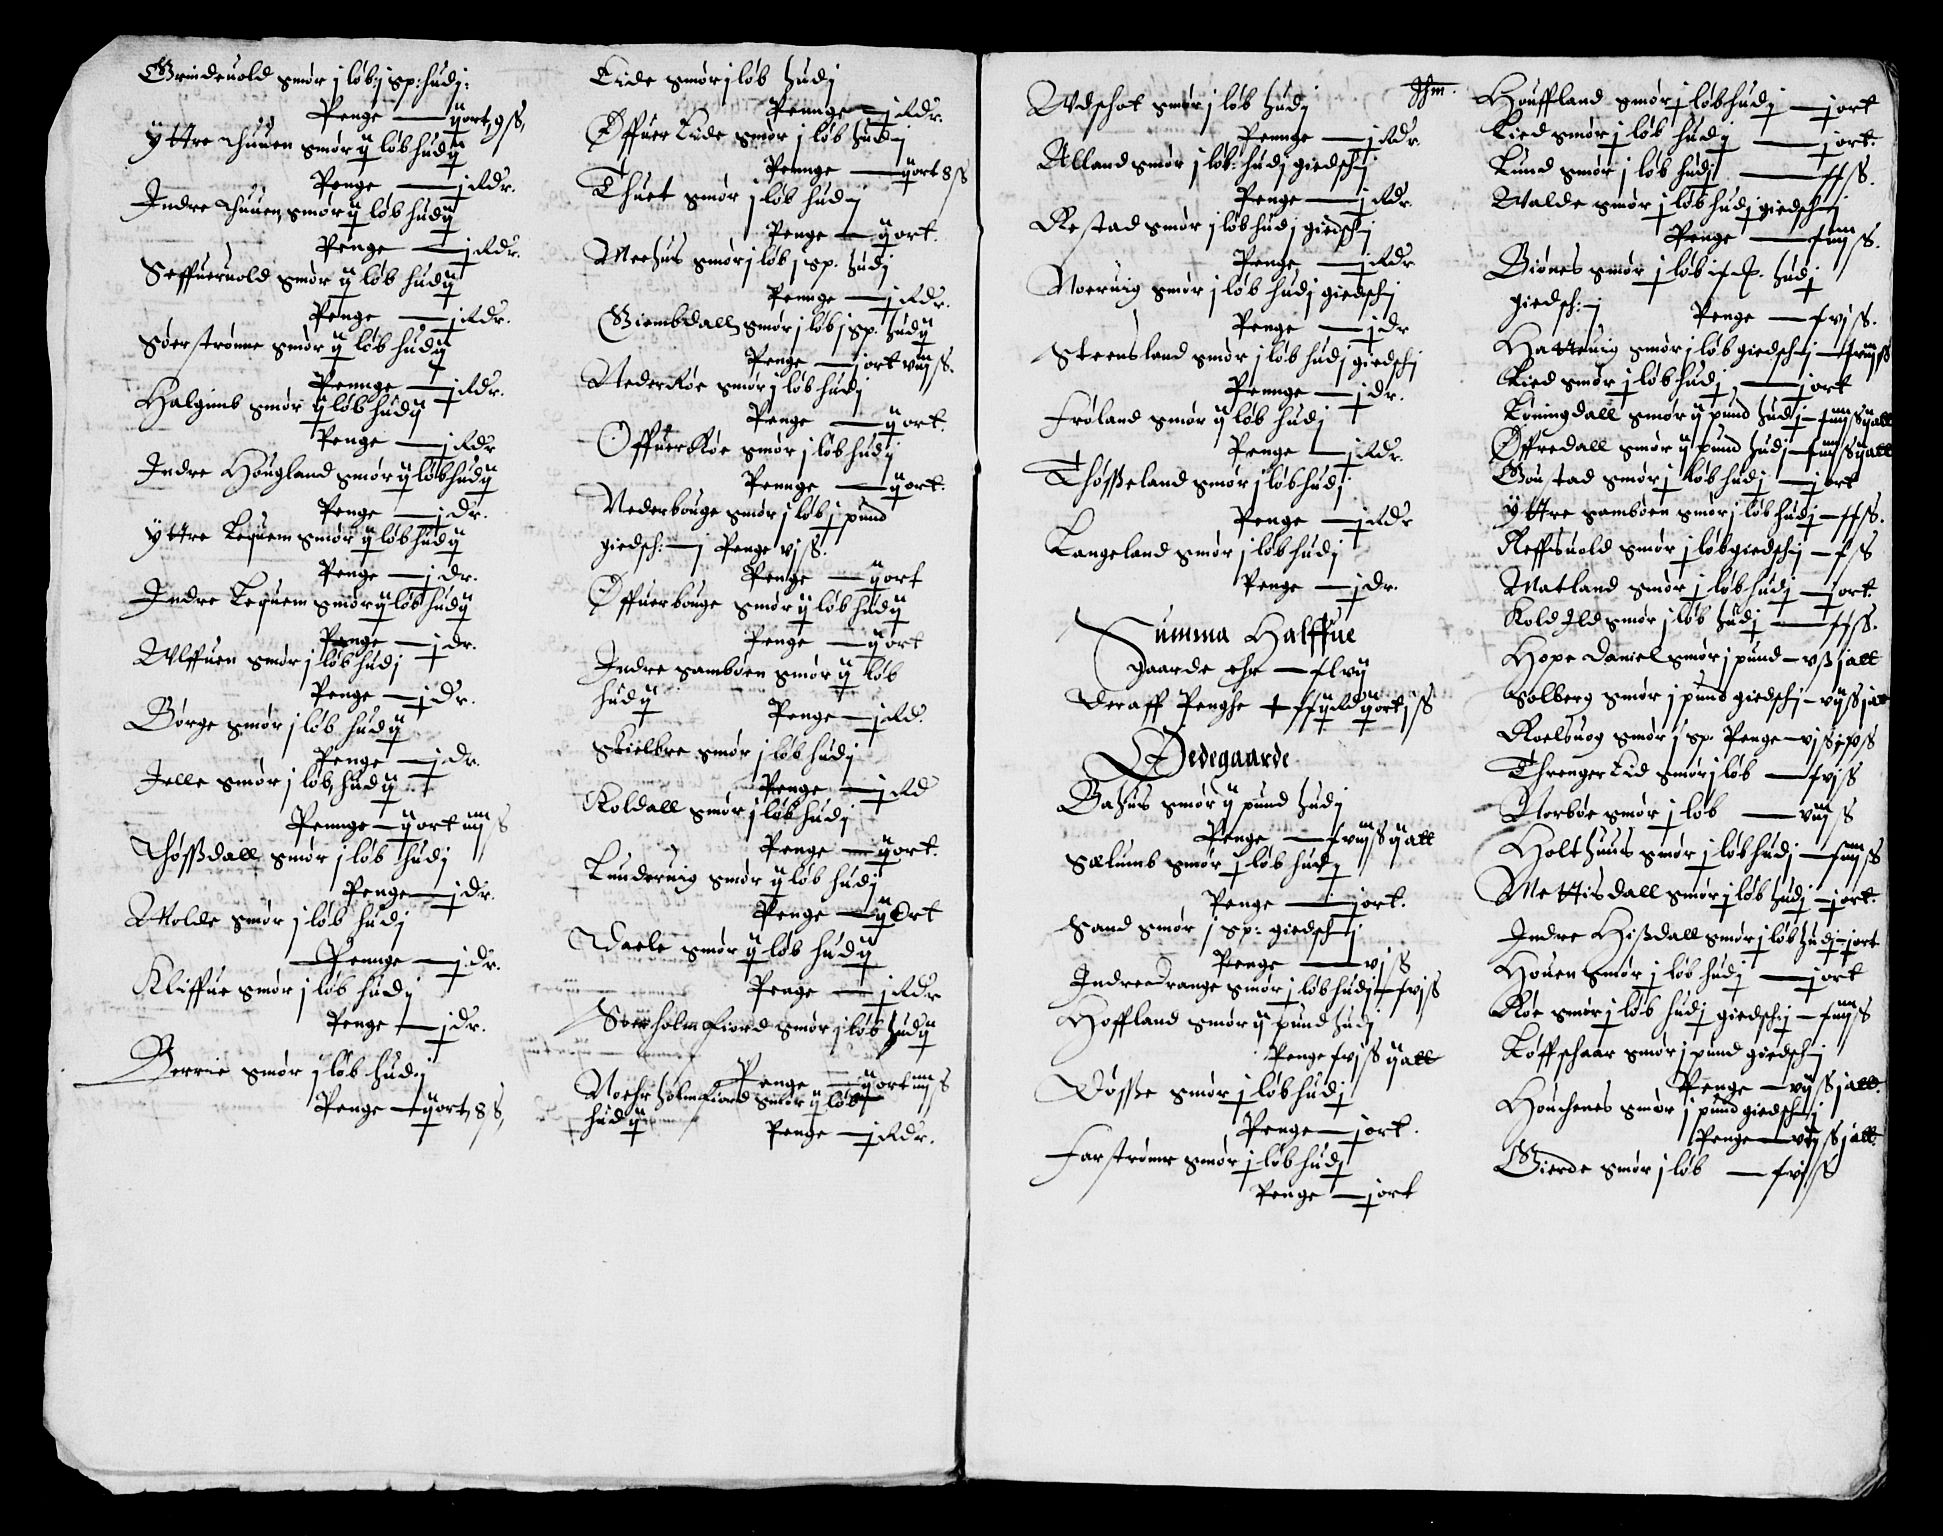 Grindeuold smør j løb: j sp: hud j:
Penge — ij ort, 9 ß,
Ÿttre Thuuen smør ij løb hud ij
Penge — j Rdr.
Indre Thuuen, smør ij løb hud ij
Penge — j Rdr.
Seffueruold smør ij løb hud ij
Penge — j Rdr.
Søerstrønne smør ij løb hud ij
Pennge — j Rdr.
Halgimb smør ij løb hud ij
Penge — j Rdr
Indre Hougland smør ij løb hud ij
Penge — j dr.
Ÿttre Lequem smør ij løb hud ij
Penge — j dr.
Indre Lequem smør ij løb hud ij
Penge — j dr.
Wlffuen smør j løb hud j
Penge — j dr.
Børge smør j løb hud ij
Penge — j dr.
Jelle smør j løb, hud ij
Pennge — ij ort iiij ß
Thøßdall smør j løb hud j
Penge — j dr.
Molde smør j løb hud j
Pennge — j dr.
Kliffue smør j løb hud j
Penge — j dr.
Berrie smør j løb hud j
Penge — ij ort, 8 ß,
Lide smør j løb hud j
Pennge — j Rdr.
Øffuer Lide smør j løb hud j
Pennge — ij ort 8 ß
Thuet smør j løb hud j
Penge — ij ort.
Meehus smør j løb j sp. hud j
Pennge — j Rdr.
Giembdall, smør j løb j sp. hud ij
Penge — j ort viij ß.
Neder Røe smør j løb hud j
Penge — ij ort.
Offuer Røe smør j løb hud j
Pennge — ij ort.
Nederbouge smør j løb j pund
giedsch: — j Penge vj ß.
Penge — ij ort
Øffuerbouge smør ij løb hud ij
Penge — ij ort
Indre samboen smør ij løb
hud ij
Penge — j Rd.
Skielbre smør j løb hud j
Penge — j Rd
Koldall smør j løb hud j
Penge — ij ort.
Lunderuig smør ij løb hud j
Penge — ij Ort
Daele smør ij løb hud ij
Penge — j Rdr
Søerholmfiord smør j løb hud ij
Penge — ij ort iiij ß
Noehrholmfiord smør ij løb
hud ij
Penge — j Rdr.
Wdschot smør j løb hud j
Pennge — j Rdr
Alland smør j løb: hud j giedsch j
Penge — j Rdr.
Restad smør j løb hud j giedsch j
Penge, — j Rdr
Noeruig smør j løb hud j giedsch j
Penge — j dr
Steensland smør j løb hud j giedsch j
Pennge — j dr.
Frøland smør ij løb hud j
Penge — j Rdr.
Thøßeland smør j løb hud j
Penge — j Rdr
Langeland smør j løb hud j
Penge — j dr.
Summa Halffue
gaarde ehr — xlvij
Deraff Penghe
Ødegaarde
Bahus smør ij pund hud j
Penge — xviij ß ij alb
Sælumb smør j løb hud j
Penge — j ort.
Sand smør j sp: giedsch j
Penge — vj ß
Indre Drange smør j løb hud j — xvj ß
Hoffland smør ij pund hud j
Penge xvj ß ij alb
Døsße smør j løb hud j
Penge — j ort.
Farstrøme smør j løb hud j
Penge — j ort
Houffland smør j løb hud j — j ort
Lied smør j løb hud j — j ort.
Lund smør j løb hud j — xx ß.
Walde smør j løb hud j giedsch j
Penge — xiiij ß.
Biønes smør j løb hud j
giedsch: — j Penge — xvj ß.
Hatteuig smør j løb giedsch j — xviij ß
Lied smør j løb hud j — j ort
Koningdall smør ij pund hud j — xiiij ß ij alb
Øffredall smør ij pund hud j — xiiij ß ij alb
Goustad smør j løb hud j — j ort
Ÿttre samboen smør j løb hud j — xx ß.
Reffsuold smør j løb giedsch j — x ß
Matland smør j løb hud j — j ort.
Kold Ild smør j løb hud j — xx ß.
Hope Daniel smør j pund — v ß j alb
Solberg smør j pund giedsch j — vij ß j alb
Roelsuog smør j sp. Penge
Threngerlid smør j løb — xvj ß
Norbøe smør j løb — viij ß
Holthuus smør j løb hud j — xiiij ß
Mettisdall smør j løb hud j — j ort.
Indre Hißdall smør j løb hud j — j ort
Houen smør j løb hud j — j ort
Røe smør j løb hud j giedsch j — xiiij ß
Løffschaar smør j pund giedsch j
Penge — vij ß j alb.
Houchenes smør j pund giedsch j
Penge — vij ß j alb.
Gierde smør j løb — xvj ß